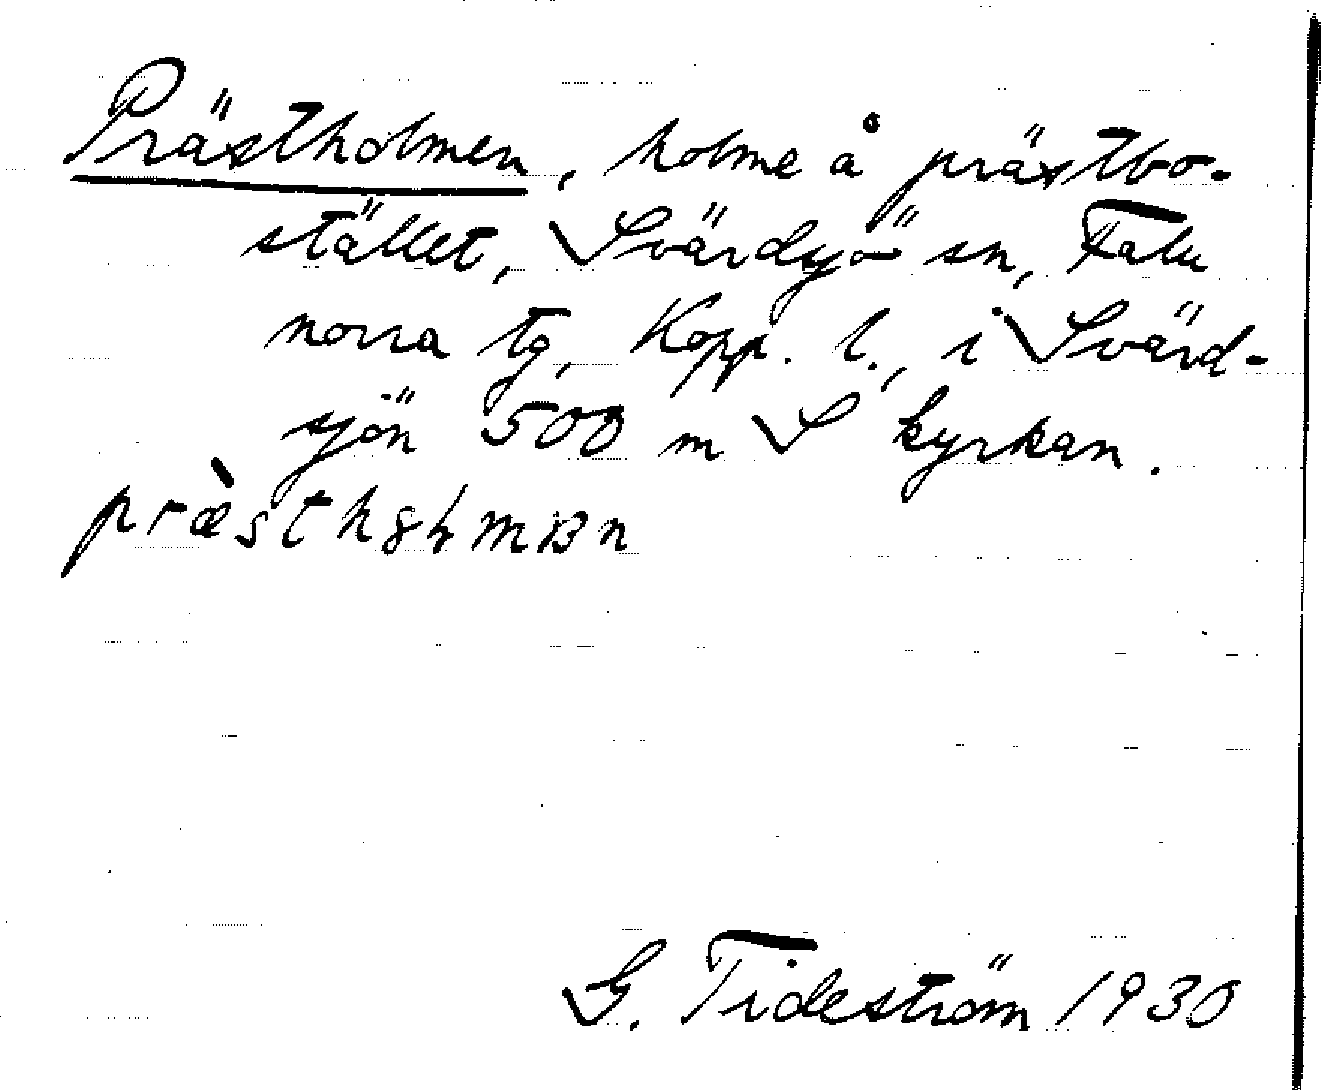 Prästholmen, holme å prästbo-
stället, Svärdsjö sn, Falu
norra tg, Kopp. l., i Svärd-
sjön 500 m S kyrkan.
G. Tideström 1930